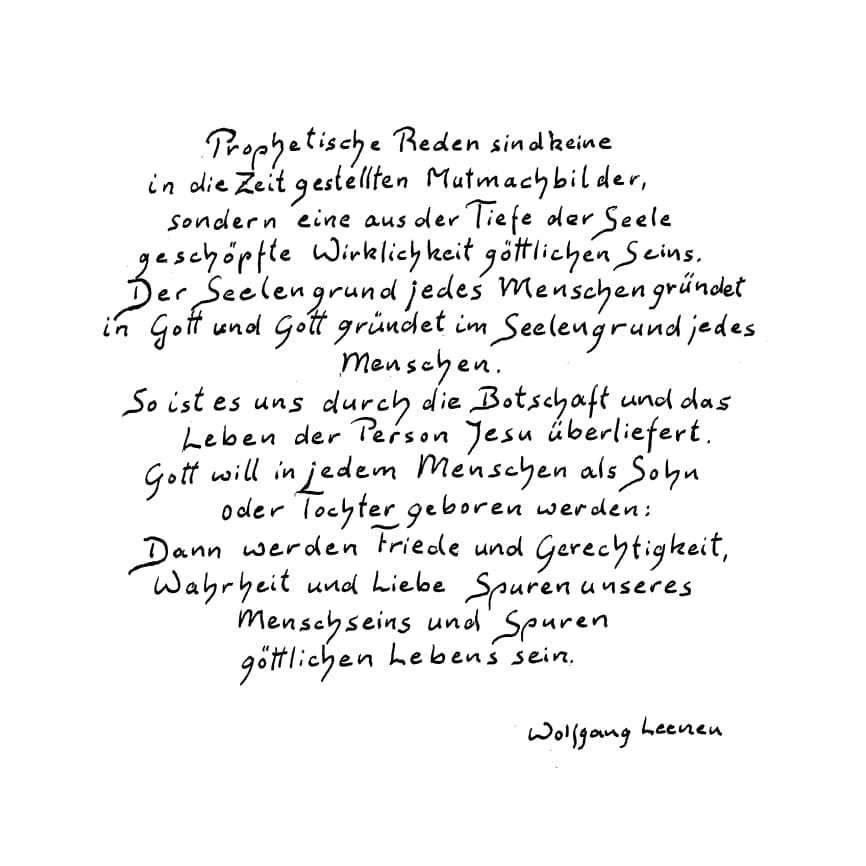 Prophetische Reden sind keine
in die Zeit gestellten Mutmachbilder,
sondern eine aus der Tiefe der Seele
geschöpfte Wirklichkeit göttlichen Seins.
Der Seelengrund jedes Menschen gründet
in Gott und Gott gründet im Seelengrund jedes
Menschen.
So ist es uns durch die Botschaft und das
Leben der Person Jesu überliefert.
Gott will in jedem Menschen als Sohn
oder Tochter geboren werden:
Dann werden Friede und Gerechtigkeit,
Wahrheit und Liebe Spuren unseres
Menschseins und Spuren
göttlichen Lebens sein.
Wolfgang Leenen